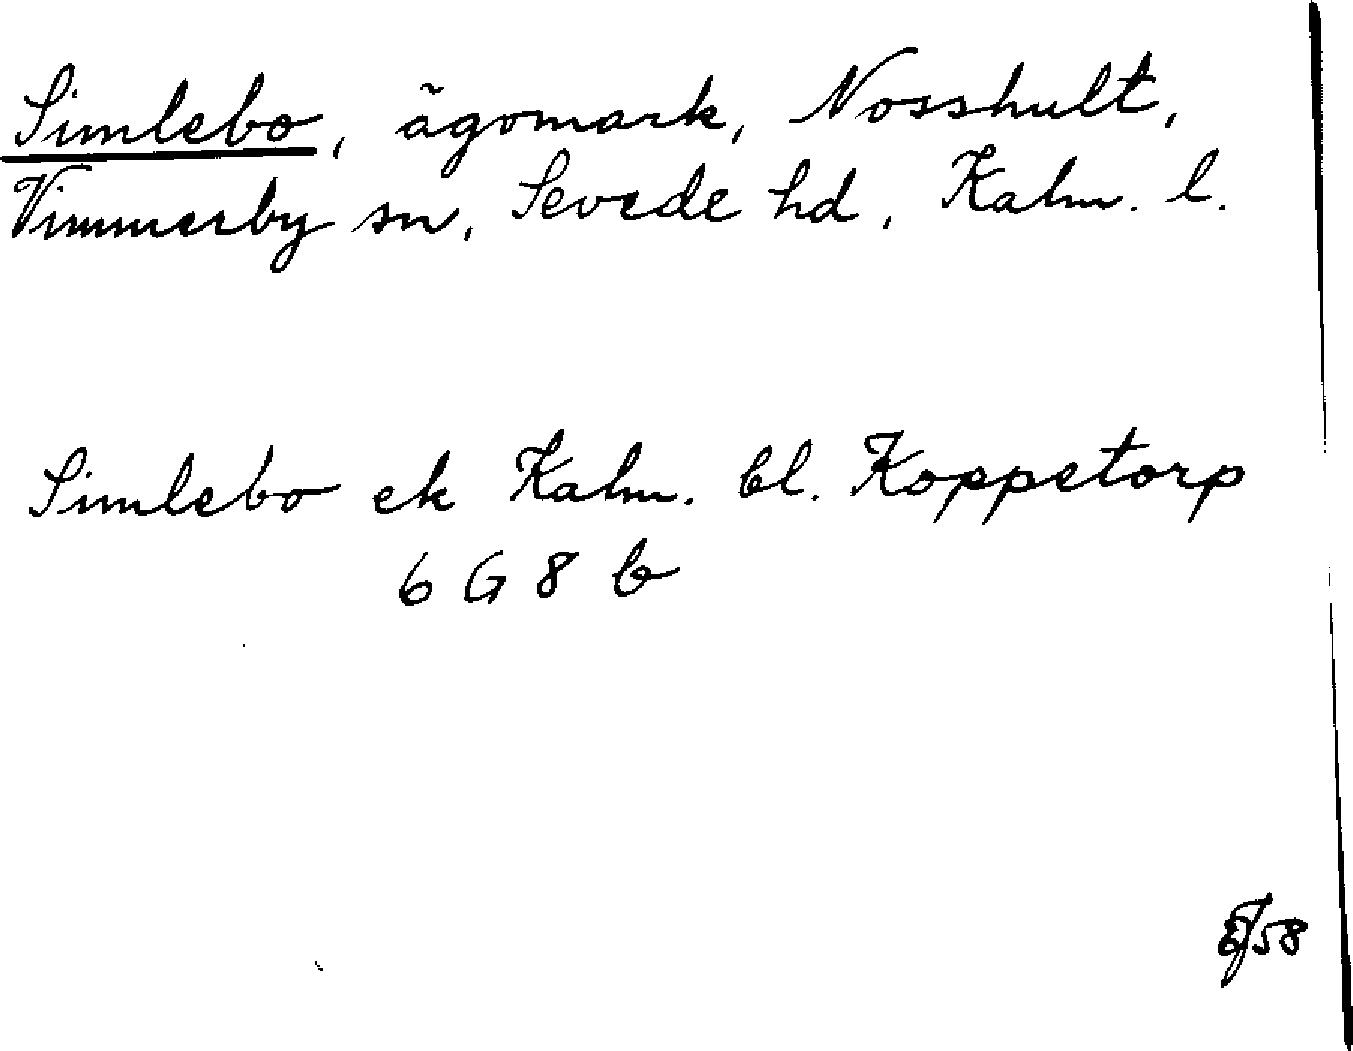 Simlebo, ägomark, Nosshult,
Vimmerby sn, Sevede hd, Kalm. l.
Simlebo ek Kalm. bl. Koppetorp
6 G 8 b
58